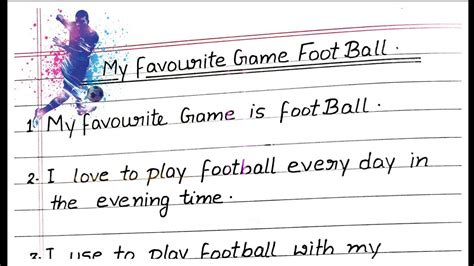 My Favourite Game Foot Ball.
1. My favourite Game is footBall.
2. I love to play football every day in
the evening time.
3. I use to play football with my